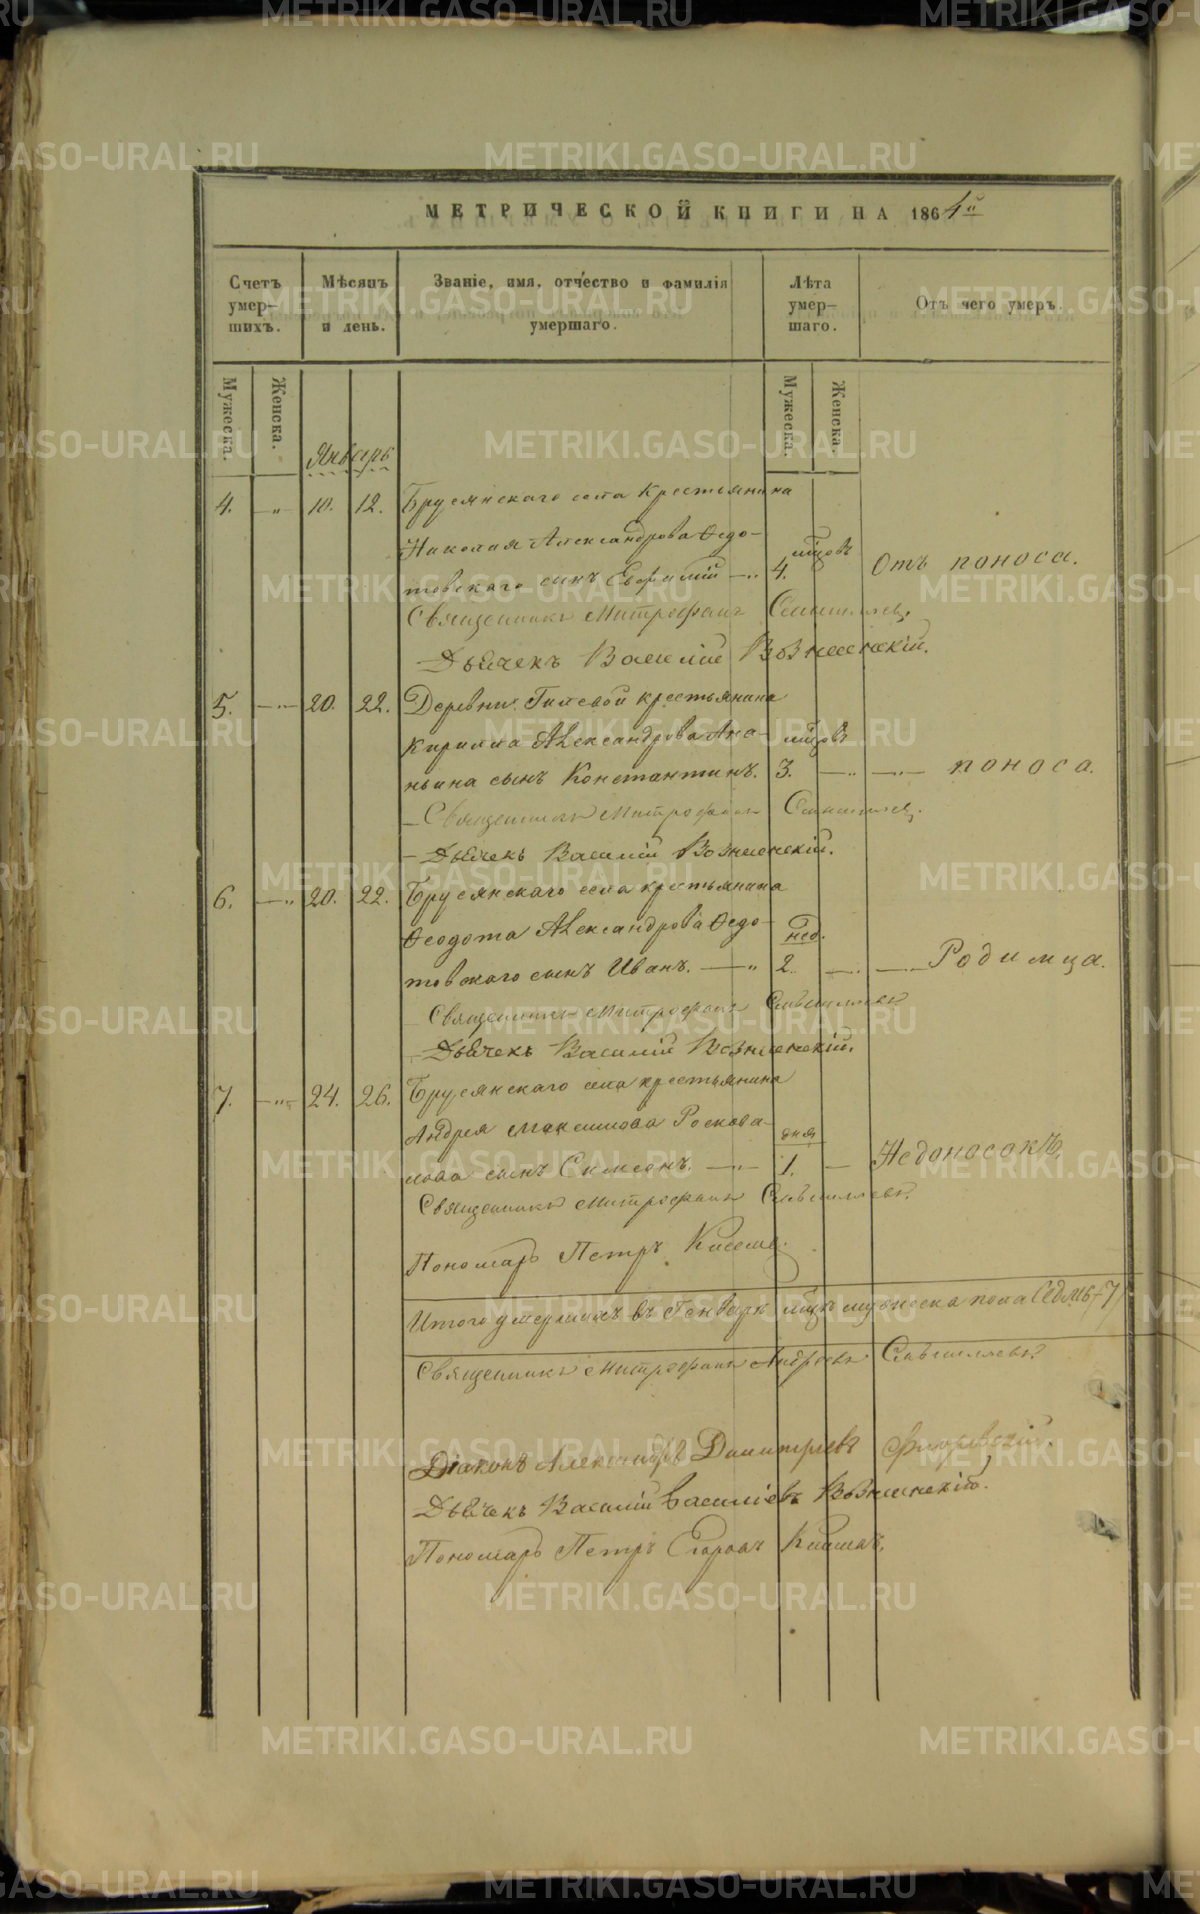 МЕТРИЧЕСКОЙ КНИГИ НА 1864й
Счетъ умер-шихъ.
Мѣсяцъ и день.
Званіе, имя, отчество и фамилія умершаго.
Лѣта умер-шаго.
Отъ чего умеръ.
Мужеска.
Женска.
Январь
Мужеска.
Женска.
4. 10. 12. Брусянскаго села крестьянина
Николая Александрова Ѳедо-
товскаго сынъ Евфимій 4. мцовъ Отъ поноса.
Священникъ Митрофанъ
Дьячекъ Василій Вознесенскій.
5. 20. 22. Деревни Гилевой крестьянина
Кирилла Александрова Ана-
ньина сынъ Константинъ. 3. мцовъ поноса.
Священникъ Митрофанъ
Дьячекъ Василій Вознесенскій.
6. 20. 22. Брусянскаго села крестьянина
Ѳеодота Александрова Ѳедо-
товскаго сынъ Иванъ. 2. нед. Родимца.
Священникъ Митрофанъ
Дьячекъ Василій Вознесенскій.
7. 24. 26. Брусянскаго села крестьянина
Андрея Максимова
сынъ Симеонъ. 1. дня Недоносокъ.
Священникъ Митрофанъ
Пономарь Петръ
Итого умершихъ въ Генварѣ мцѣ мужеска пола седмь 7
Священникъ Митрофанъ Андреевъ
Діаконъ Александръ Димитріевъ
Дьячекъ Василій Васильевъ Вознесенскій.
Пономарь Петръ Егоровъ
METRIKI.GASO-URAL.RU